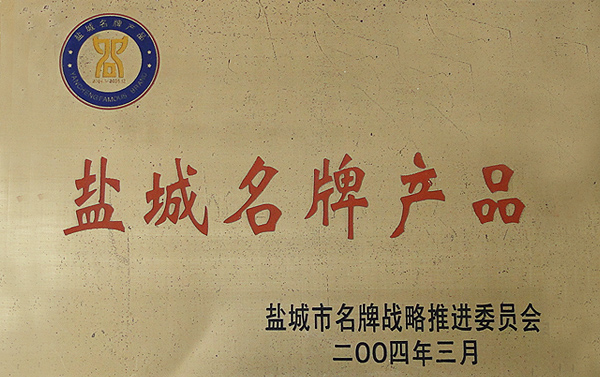 盐城名牌产品
YANCHENG FAMOUS BRAND
盐城名牌产品
盐城市名牌战略推进委员会
二〇〇四年三月